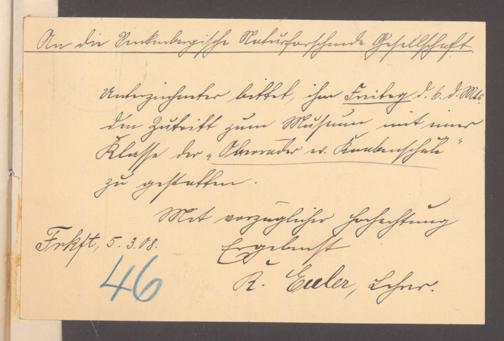 An die Senkenbergische Naturforschende Gesellschaft
Unterzeichneter bittet, ihm Freitag d. 6. d. Mts.
den Zutritt zum Museum mit einer
Klasse der „Oberräder ev. Knabenschule"
zu gestatten.
Mit vorzüglicher Hochachtung
Frkft, 5.3.08.
Ergebenst
K. Euler, Lehrer.
46